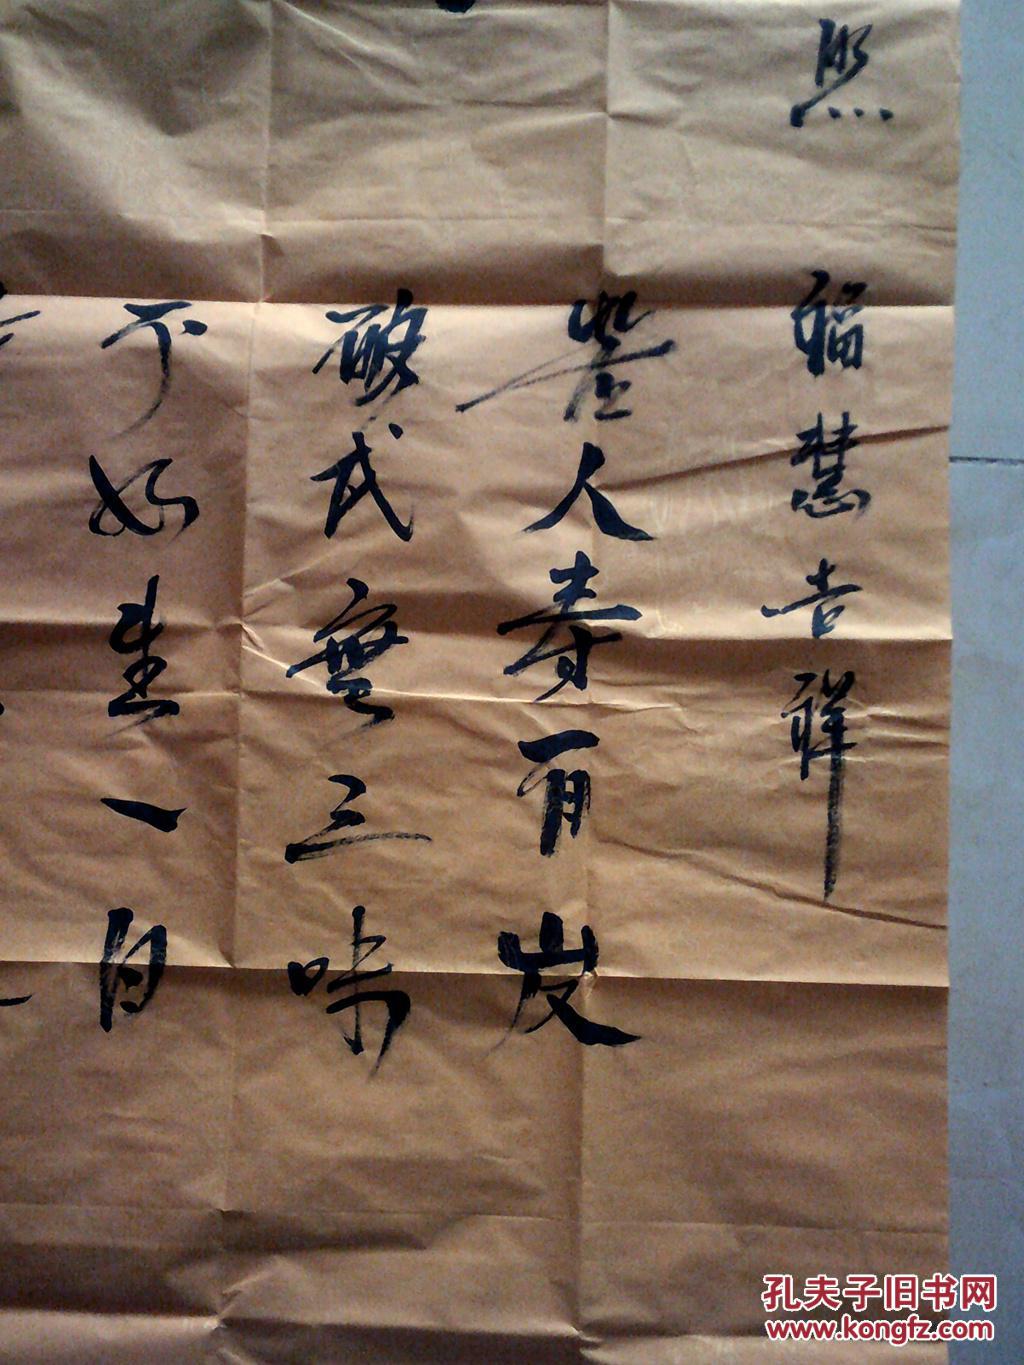 照
福慧吉祥
人壽百岁
破戒無三昧
不如生一日
孔夫子旧书网
www.kongfz.com